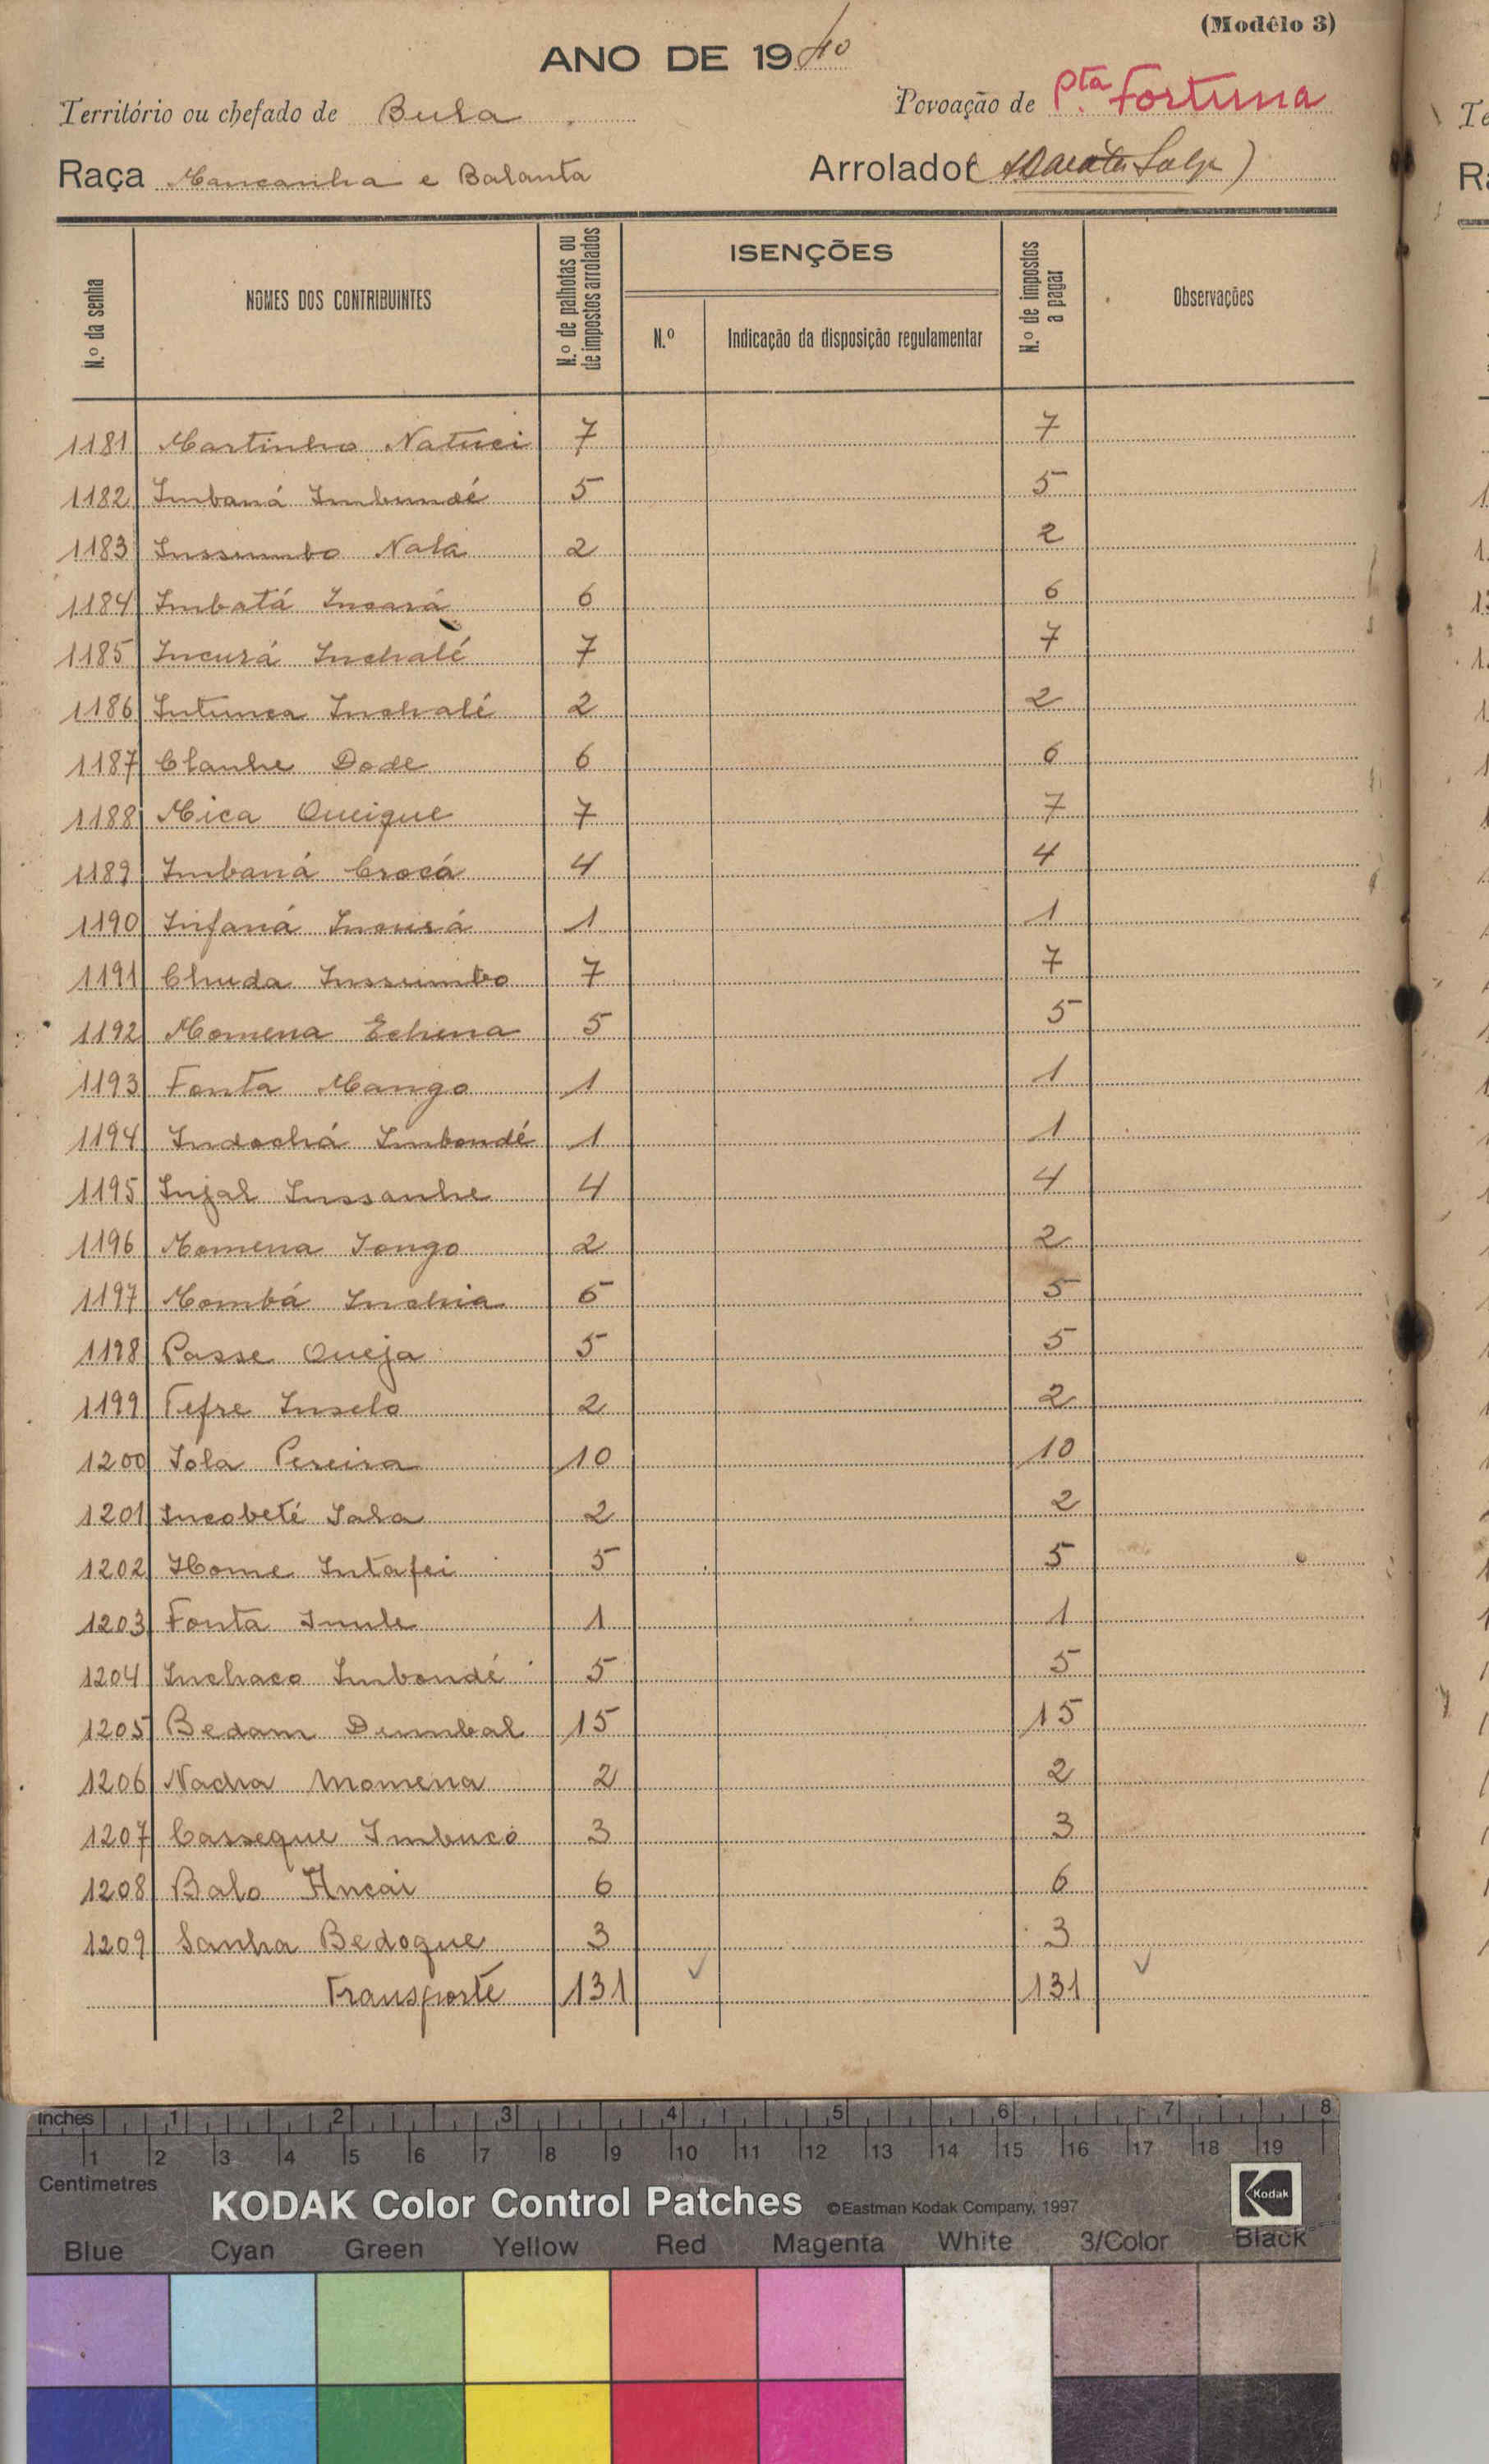 (Modêlo 3)
ANO DE 1940
Território ou chefado de Bula Povoação de Pta. Fortuna
Raça Mancanha e Balanta Arrolador
N.º da senha NOMES DOS CONTRIBUINTES N.º de palhotas ou de impostos arrolados ISENÇÕES N.º Indicação da disposição regulamentar N.º de impostos a pagar Observações
1181 Martinho Natuci 7 7
1182 Imbaná Imbundé 5 5
1183 Inssumbo Nala 2 2
1184 Imbatá Incará 6 6
1185 Incurá Inchalé 7 7
1186 Intunca Inchalé 2 2
1187 Clanhe Dode 6 6
1188 Mica Queique 7 7
1189 Imbaná Crocá 4 4
1190 Infaná Incurá 1 1
1191 Chuda Inssumbo 7 7
1192 Momena Echena 5 5
1193 Fonta Mango 1 1
1194 Indochá Imbondé 1 1
1195 Injal Inssanhe 4 4
1196 Momena Iongo 2 2
1197 Mombá Inchia 5 5
1198 Passe Queja 5 5
1199 Tefre Insolo 2 2
1200 Ióla Pereira 10 10
1201 Incobeté Sala 2 2
1202 Home Intafei 5 5
1203 Fonta Imule 1 1
1204 Inchaco Imbondé 5 5
1205 Bedam Dumbal 15 15
1206 Nacha Momena 2 2
1207 Casseque Imbucó 3 3
1208 Balo Ancai 6 6
1209 Sanha Bedoque 3 3
Transporte 131 131
inches 1 2 3 4 5 6 7 8
1 2 3 4 5 6 7 8 9 10 11 12 13 14 15 16 17 18 19
Centimetres
KODAK Color Control Patches ©Eastman Kodak Company, 1997 Kodak
Blue Cyan Green Yellow Red Magenta White 3/Color Black